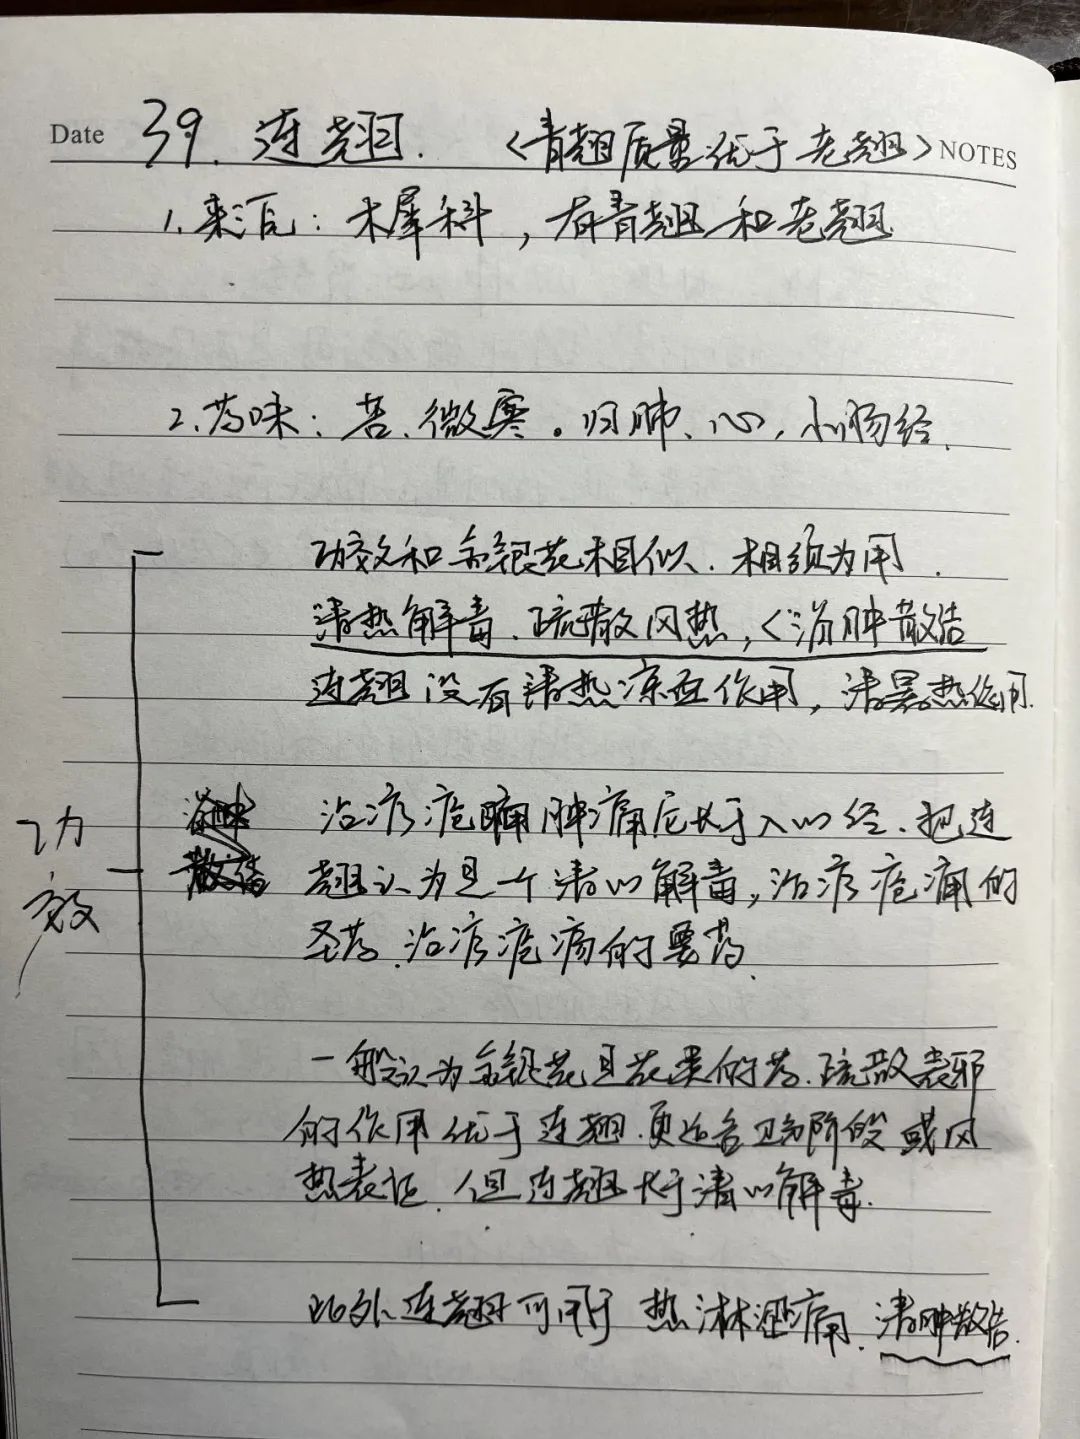 Date 39. 连翘. <青翘质量优于老翘> NOTES
1. 来源: 木犀科, 有青翘和老翘
2. 药味: 苦、微寒。归肺、心, 小肠经.
功效和金银花相似. 相须为用.
清热解毒. 疏散风热, <消肿散结
连翘没有清热凉血作用, 清暑热作用.
功
效
消肿
散结
治疗疮痈肿痛尤长于入心经、把连
翘认为是一个清心解毒, 治疗疮痛的
圣药. 治疗疮疡的要药.
一般认为金银花是花类的药. 疏散表邪
的作用优于连翘. 更适合卫分阶段或风
热表证. 但连翘长于清心解毒.
此外连翘可用于热淋涩痛. 清肿散结.